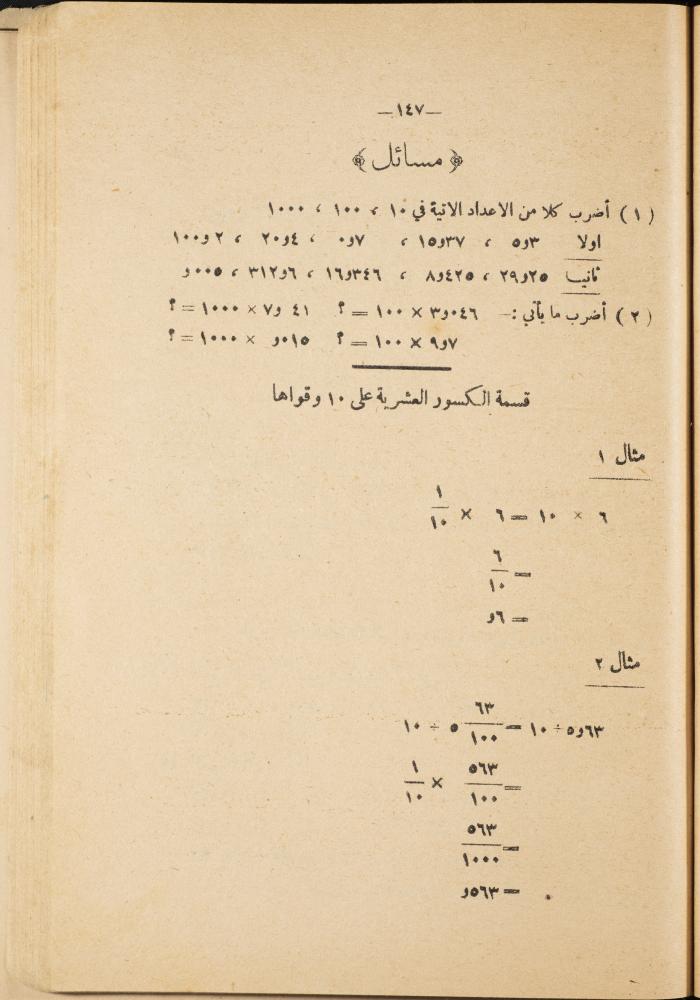 —١٤٧—
﴿ مسائل ﴾
( ١ ) أضرب كلا من الاعداد الاتية في ١٠ ، ١٠٠ ، ١٠٠٠
اولا ٣و٥ ، ٣٧و١٥ ، ٧و٠ ، ٤و٢٠ ، ٢و١٠٠
ثانيا ٢٥و٢٩ ، ٤٢٥و٨ ، ٣٤٦و١٦ ، ٦و٣١٢ ، ٠٠٥و
( ٢ ) أضرب ما يأتي :— ٠٤٦و٣ × ١٠٠ = ؟ ٤١و٧ × ١٠٠٠ = ؟
٧و٩ × ١٠٠ = ؟ ٠١٥و × ١٠٠٠ = ؟
قسمة الكسور العشرية على ١٠ وقواها
مثال ١
٦ × ١٠ = ٦ × ١/١٠
= ٦/١٠
= ٦و
مثال ٢
٦٣و٥ ÷ ١٠ = ٦٣/١٠٠ ٥ ÷ ١٠
= ٥٦٣/١٠٠ × ١/١٠
= ٥٦٣/١٠٠٠
= ٥٦٣و